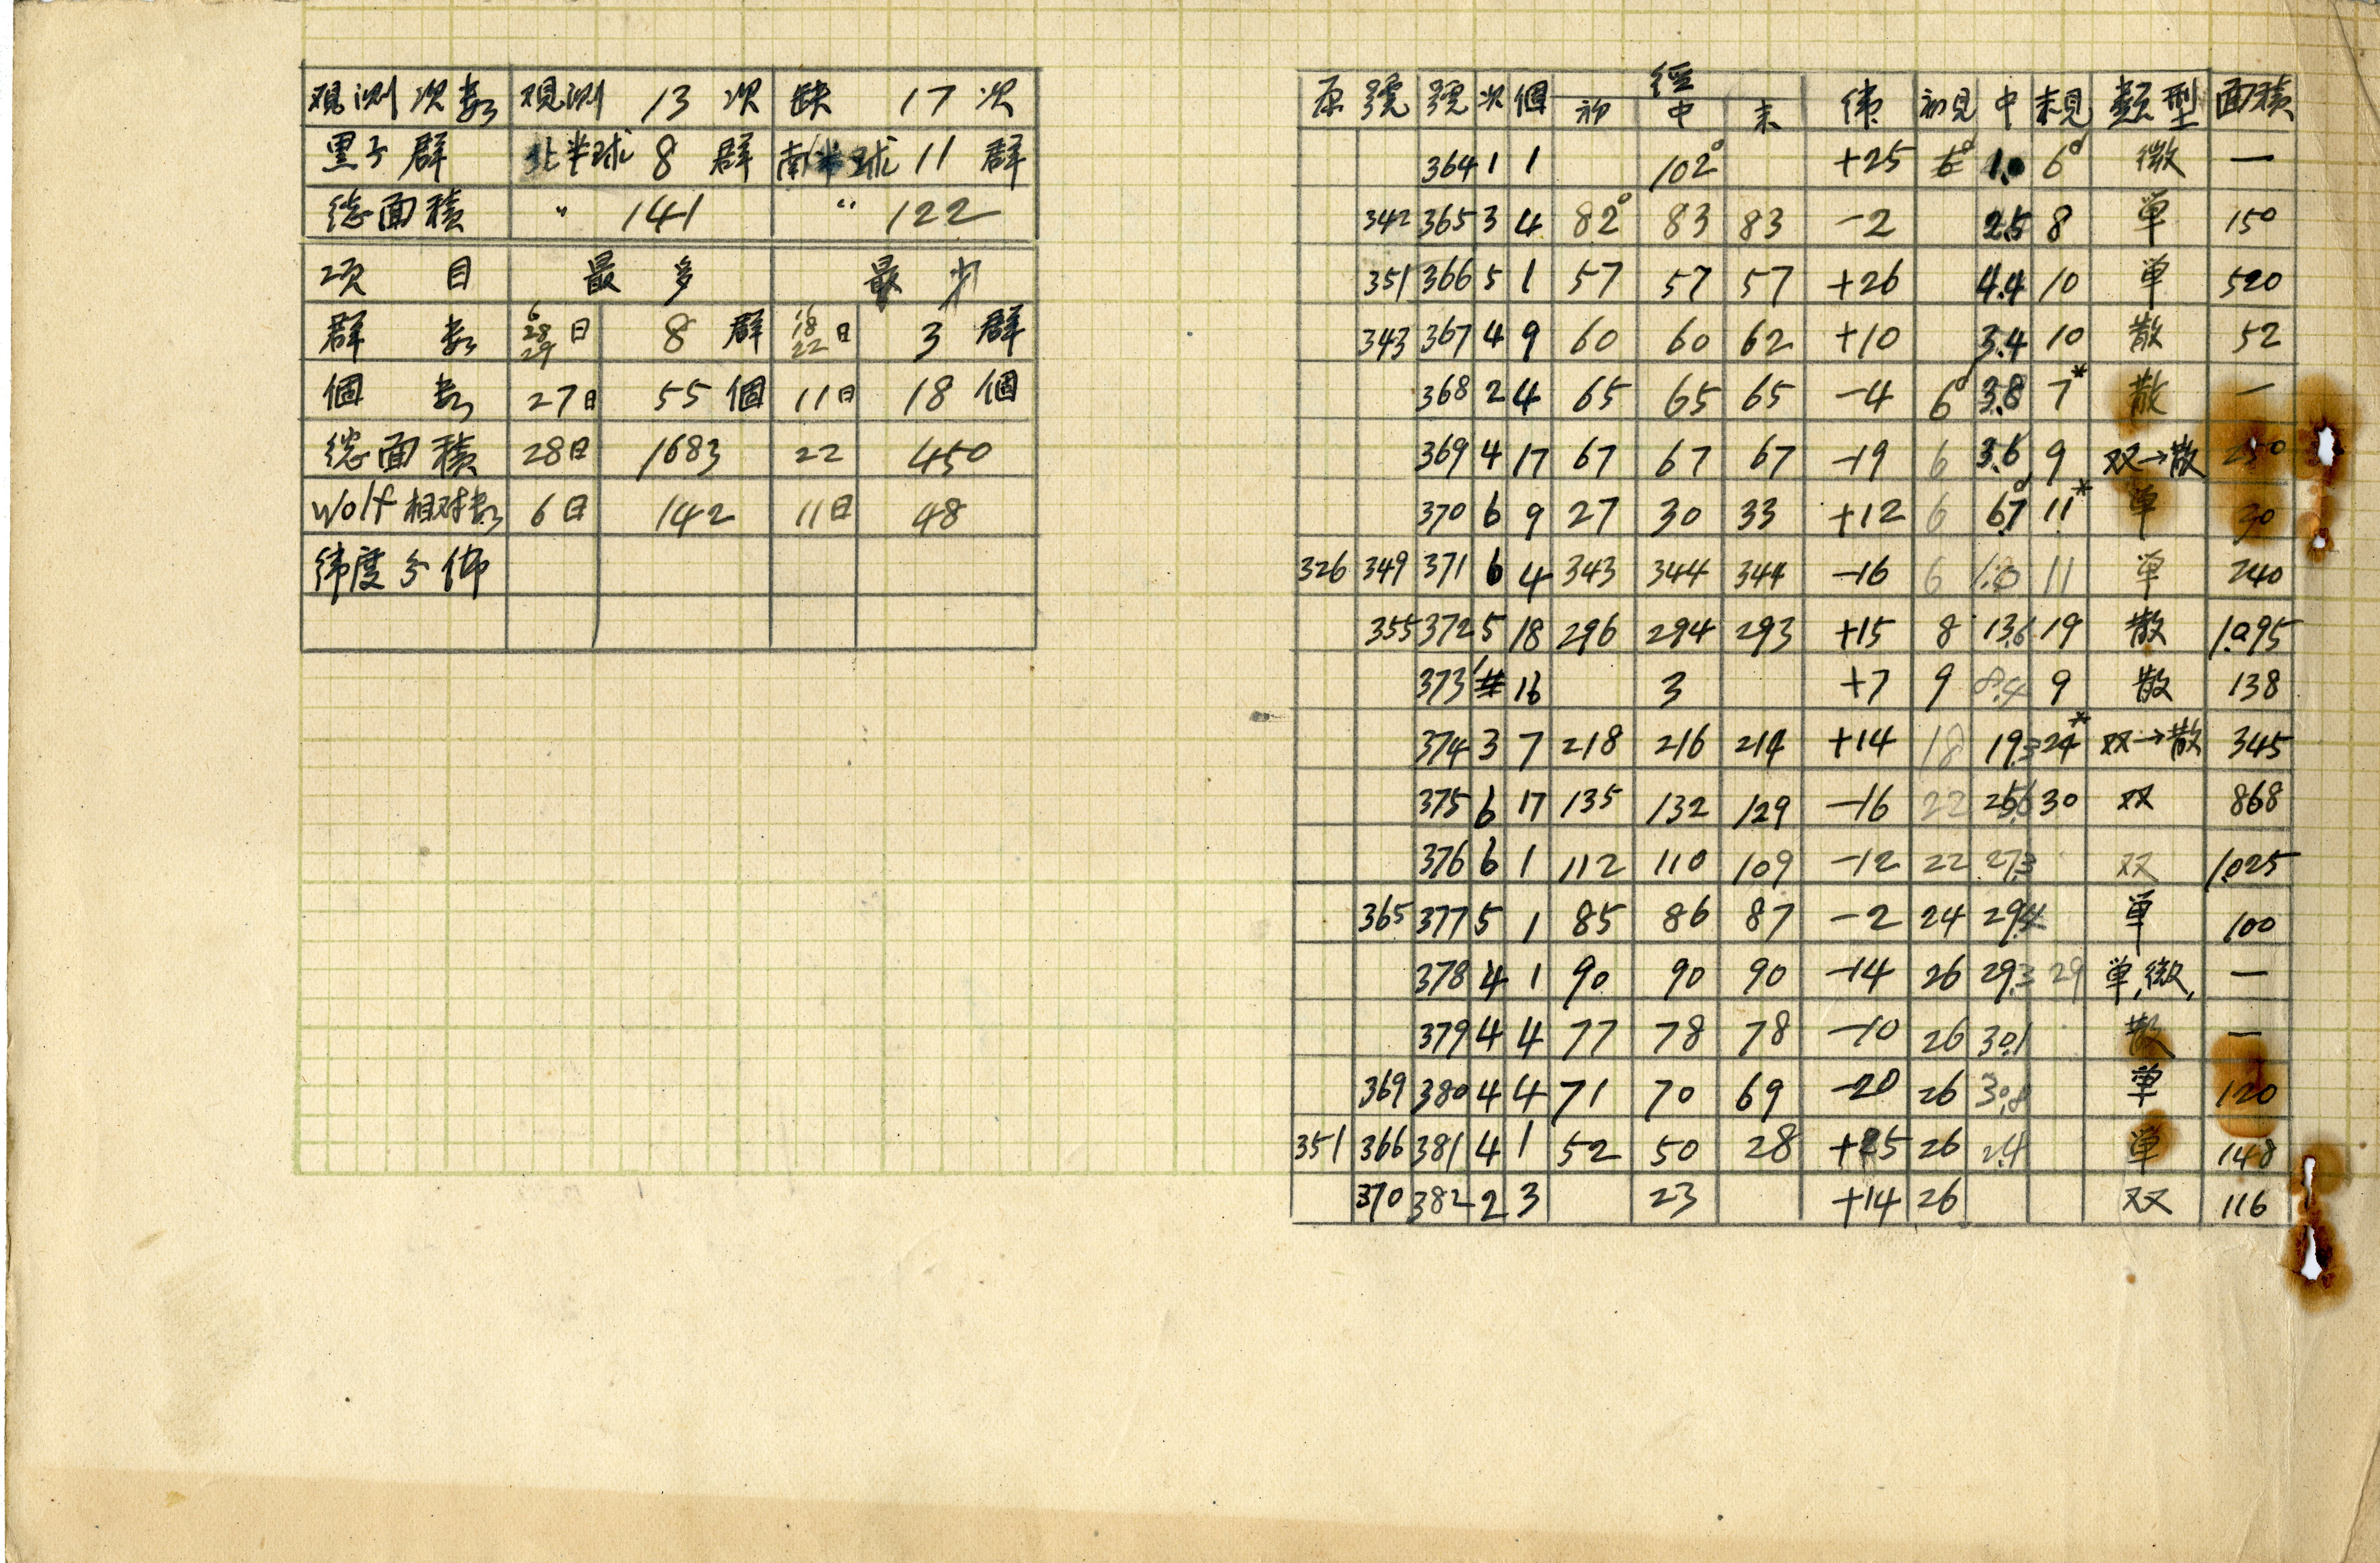 观測次数 观測 13 次 缺 17 次
黒子群 北半球 8 群 南半球 11 群
総面積 〃 141 〃 122
項目 最多 最少
群数 6 28 29 日 8 群 16 18 22 日 3 群
個数 27日 55 個 11日 18 個
総面積 28日 1683 22 450
Wolf相対数 6日 142 11日 48
緯度分佈
原 號 號 次 個 經 初 中 末 緯 初見 中 末見 類型 面積
364 1 1 102° +25 6d 1.0 6d 微 —
342 365 3 4 82° 83 83 -2 2.5 8 单 150
351 366 5 1 57 57 57 +26 4.4 10 单 520
343 367 4 9 60 60 62 +10 3.4 10 散 52
368 2 4 65 65 65 -4 6d 3.8 7* 散 —
369 4 17 67 67 67 -19 6 3.6 9 双→散
370 6 9 27 30 33 +12 6 6.7d 11* 单 30
326 349 371 6 4 343 344 344 -16 6 11 单 240
355 372 5 18 296 294 293 +15 8 13.6 19 散 1.095
373 16 3 +7 9 8.4 9 散 138
374 3 7 218 216 214 +14 18 19.3 24* 双→散 345
375 6 17 135 132 129 -16 22 25.6 30 双 868
376 6 1 112 110 109 -12 22 27.3 双 1.025
365 377 5 1 85 86 87 -2 24 29.4 单 100
378 4 1 90 90 90 -14 26 29.3 29 单,微, —
379 4 4 77 78 78 -10 26 30.1 散 —
369 380 4 4 71 70 69 -20 26 30.8 单 120
351 366 381 4 1 52 50 28 +25 26 2.4 单 148
370 382 2 3 23 +14 26 双 116